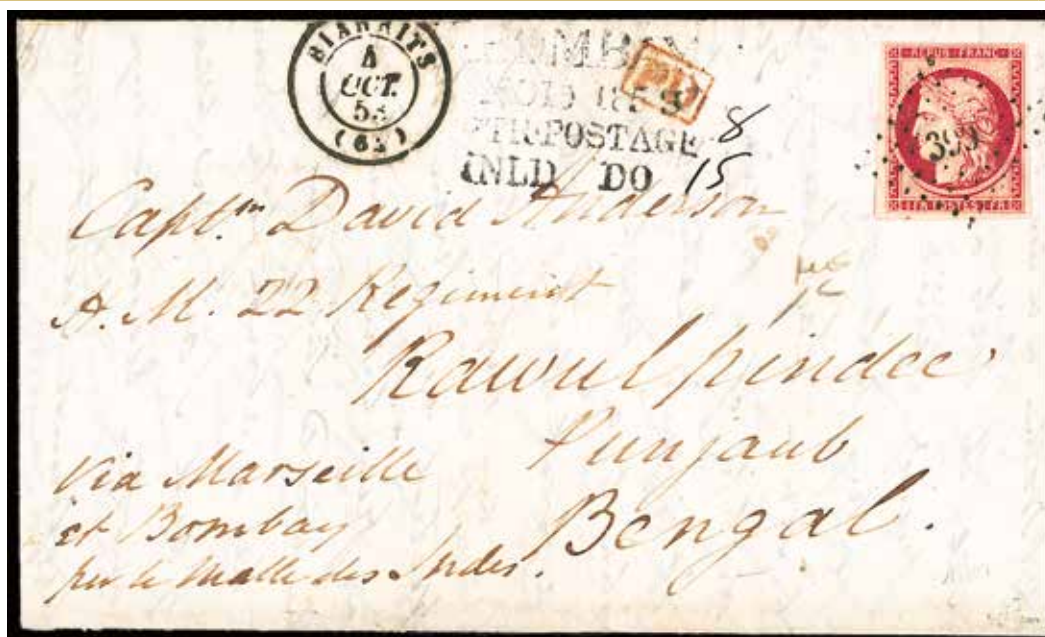 BIARRITS
4
OCT.
53
(64)
BOMBAY
1853
STR POSTAGE 8
INLD DO 15
399
REPUB FRANC
POSTES
Capt.n David Anderson
H. M. 22 Regiment
Rawul pindee
Punjaub
Bengal.
Via Marseille
et Bombay
per le Malle des Indes.